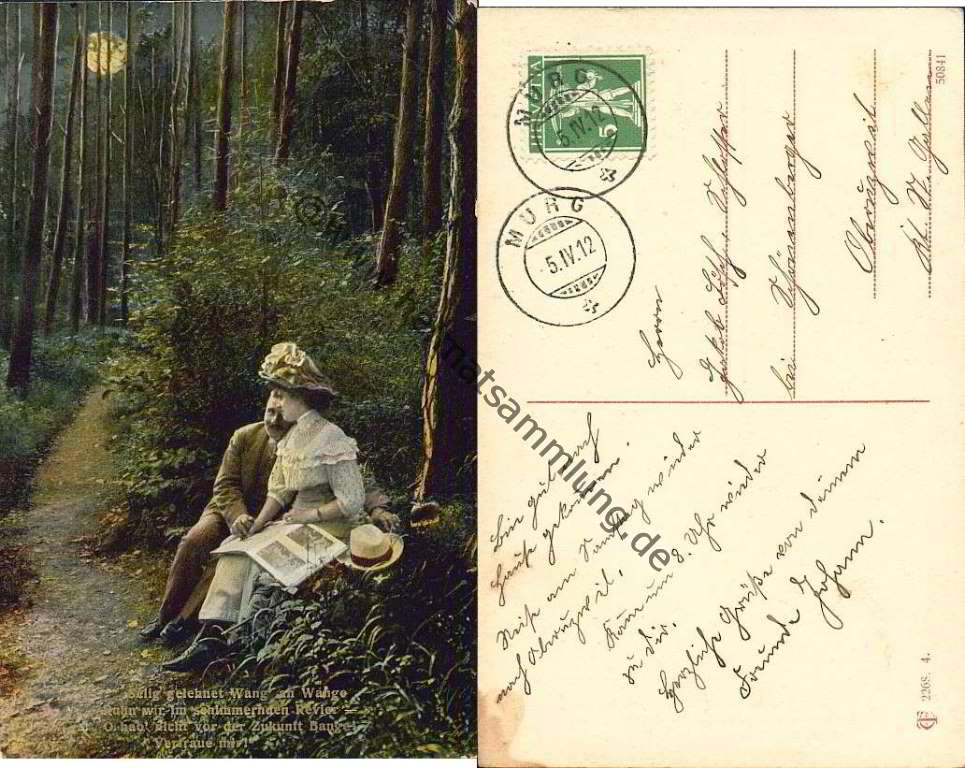 Selig gelehnet Wang' an Wange
Ruhn wir im schlummernden Revier —
O, hab' nicht vor der Zukunft Bange!
Vertraue mir!
MURG
5.IV.12
HELVETIA
5
MURG
5.IV.12
Herrn
bei Schönenberger
Oberuzwil
Kt. St. Gallen
50841
Bin gut nach
Hause gekommen.
Reise am Samstag wieder
nach Oberuzwil.
Komm um 8. Uhr wieder
zu dir.
Herzliche Grüße von deinem
Freunde Johann.
2268. 4.
matsammlung.de